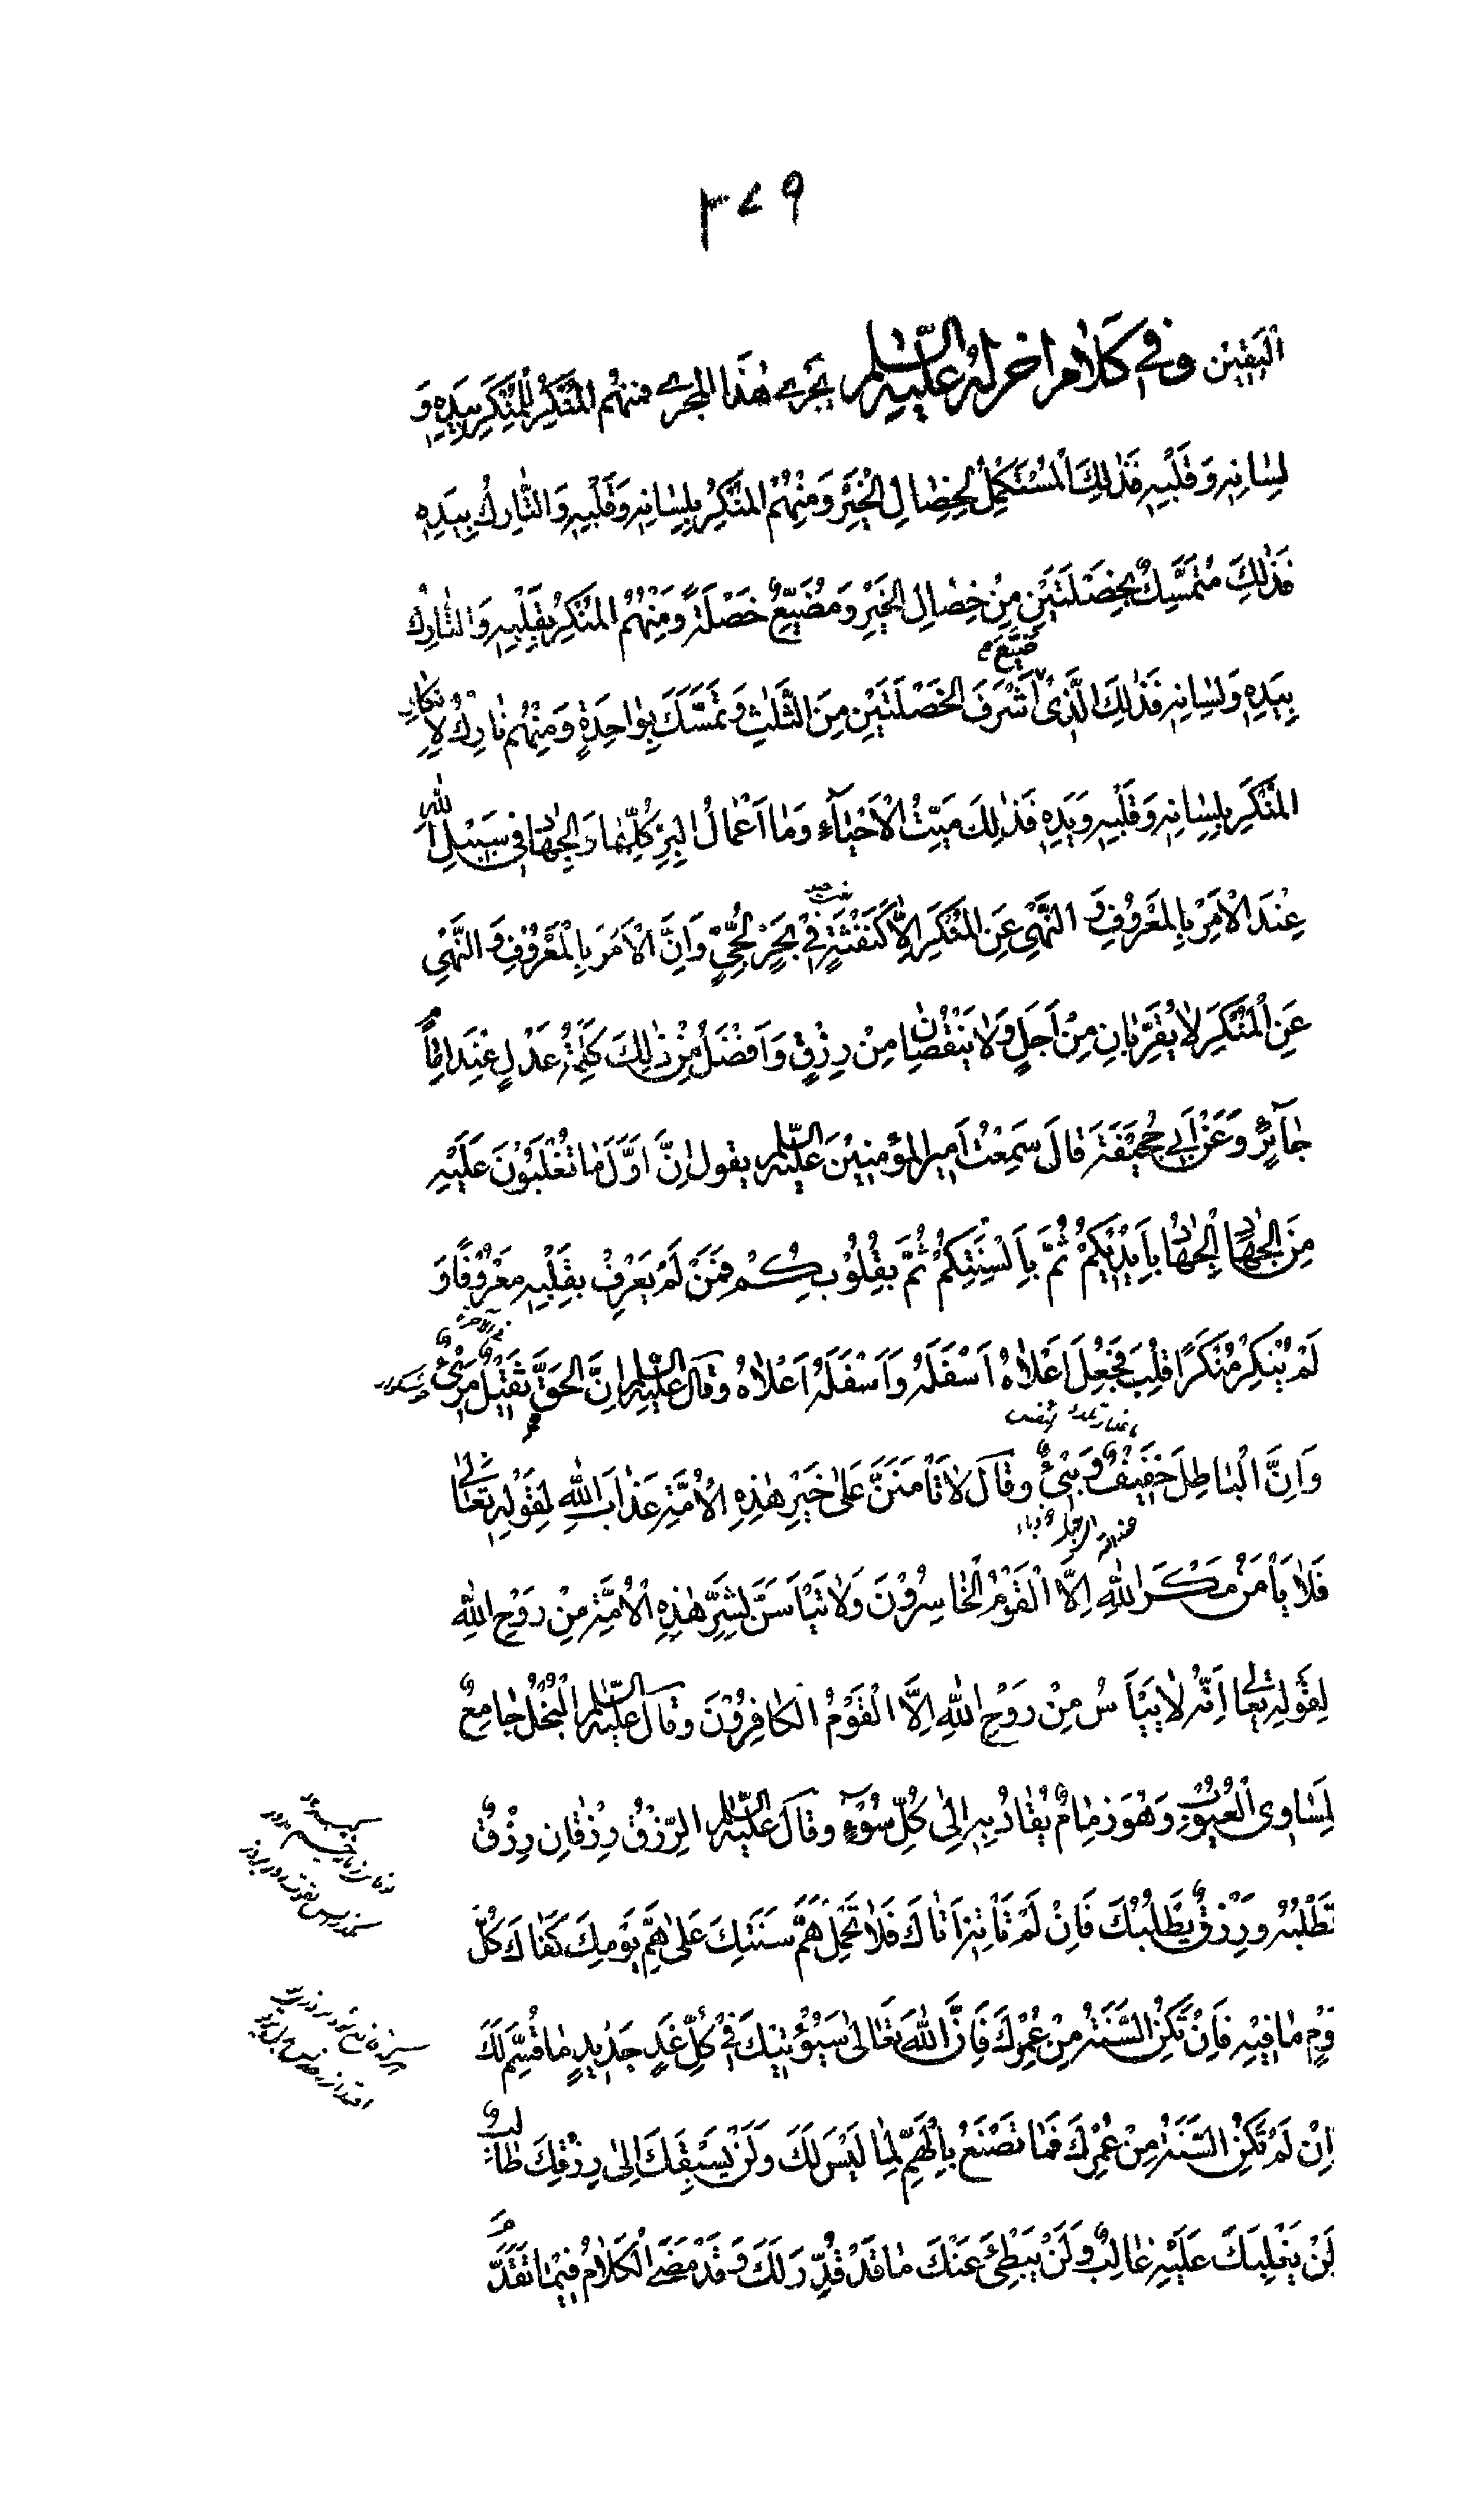 ٣٧٩
الْيَقينِ وفي كَلامٍ اخر له عليه السّلم يَجري هذا المجرى فمنهُم المُنْكِرُ لِلْمُنْكَرِ بِيَدِهِ وَ
لِسانِهِ وَقَلْبِهِ فَذلِكَ الْمُسْتَكْمِلُ لِخِصالِ الْخَيْرِ وَمِنْهُمُ المُنْكِرُ بِلِسانِهِ وَقَلْبِهِ وَالتّارِكُ بِيَدِهِ
فَذلِكَ مُتَمَسِّكٌ بِخَصْلَتَيْنِ مِنْ خِصالِ الخَيْرِ وَمُضَيِّعٌ خَصْلَةً وَمِنْهُمُ المُنْكِرُ بِقَلْبِهِ وَالتّارِكُ
ضَيَّعَ
بِيَدِهِ وَلِسانِهِ فَذلِكَ الَّذى اَشْرَفَ الخَصْلَتَيْنِ مِنَ الثَّلثِ وَتَمَسَّكَ بِواحِدَةٍ وَمِنْهُم تارِكٌ لِانكارِ
المُنْكَرِ بِلِسانِهِ وَقَلْبِهِ وَيَدِهِ فَذلِكَ مَيِّتُ الْاَحْيآءِ وَما اَعْمالُ البِرِّ كُلِّها وَالجِهادِ فى سَبيلِ الله
عِنْدَ الْاَمْرِ بِالمَعْرُوفِ وَ النَّهْىِ عَنِ المُنْكَرِ اِلّا كَنَفْثَةٍ فى بَحْرٍ لُجِّىٍّ وَاِنَّ الْاَمْرَ بِالْمَعْرُوفِ وَ النَّهْىَ
عَنِ الْمُنْكَرِ لا يُقَرِّبانِ مِنْ اَجَلٍ وَلا يَنْقُصانِ مِنْ رِزْقٍ وَاَفْضَلُ مِنْ ذلِكَ كَلِمَةُ عَدْلٍ عِنْدَ اِمامٍ
جآئِرٍ وَعَنْ اَبى جُحَيْفَةَ قالَ سَمِعْتُ اَميرَ المؤمِنينَ عليه السّلم يقول اِنَّ اَوَّلَ ما تُغْلَبُونَ عَلَيْهِ
مِنَ الجِهادِ الْجِهادُ بِاَيْديكُمْ ثُمَّ بِاَلْسِنَتِكُمْ ثُمَّ بِقُلُوبِكُمْ فَمَنْ لَمْ يَعْرِفْ بِقَلْبِهِ مَعْرُوفًا وَ
لَمْ يُنْكِرْ مُنْكَرًا قُلِبَ فَجُعِلَ اَعْلاهُ اَسْفَلَهُ وَاَسْفَلُهُ اَعْلاهُ وقال عليه السّلم اِنَّ الحَقَّ ثَقيلٌ مَرِىءٌ
وَاِنَّ الْباطِلَ خَفيفٌ وَبِىءٌ وقال لا تَاْمَنَنَّ عَلى خَيْرِ هذِهِ الْاُمَّةِ عَذابَ اللهِ لِقَوْلِهِ تَعالى
فَلا يَاْمَنُ مَكْرَ اللهِ اِلَّا الْقَوْمُ الْخاسِرُونَ وَلا تَيْاَسَنَّ لِشَرِّ هذِهِ الْاُمَّةِ مِنْ رَوْحِ اللهِ
لِقَوْلِهِ تَعالى اِنَّهُ لا يَيْاَسُ مِنْ رَوْحِ اللهِ اِلَّا الْقَوْمُ الْكافِرُونَ وقال عليه السّلم الْبُخْلُ جامِعٌ
لِمَساوِى الْعُيُوبِ وَهُوَ زِمامٌ يُقادُ بِهِ اِلى كُلِّ سُوءٍ وقال عليه السّلم الرِّزْقُ رِزْقانِ رِزْقٌ
تَطْلُبُهُ وَرِزْقٌ يَطْلُبُكَ فَاِنْ لَمْ تَاْتِهِ اَتاكَ فَلا تَحْمِلْ هَمَّ سَنَتِكَ عَلى هَمِّ يَوْمِكَ كَفاكَ كُلُّ
يَوْمٍ ما فيهِ فَاِنْ تَكُنِ السَّنَةُ مِنْ عُمْرِكَ فَاِنَّ اللهَ تَعالى سَيُؤْتيكَ فى كُلِّ غَدٍ جَديدٍ ما قَسَمَ لَكَ
اِنْ لَمْ تَكُنِ السَّنَةُ مِنْ عُمْرِكَ فَما تَصْنَعُ بِالْهَمِّ لِما لَيْسَ لَكَ وَلَنْ يَسْبِقَكَ اِلى رِزْقِكَ طالِبٌ
لَنْ يَغْلِبَكَ عَلَيْهِ غالِبٌ وَلَنْ يُبْطِئَ عَنْكَ ما قَدْ قُدِّرَ لَكَ وَقَدْ مَضَى الْكَلامُ فيما تَقَدَّمَ